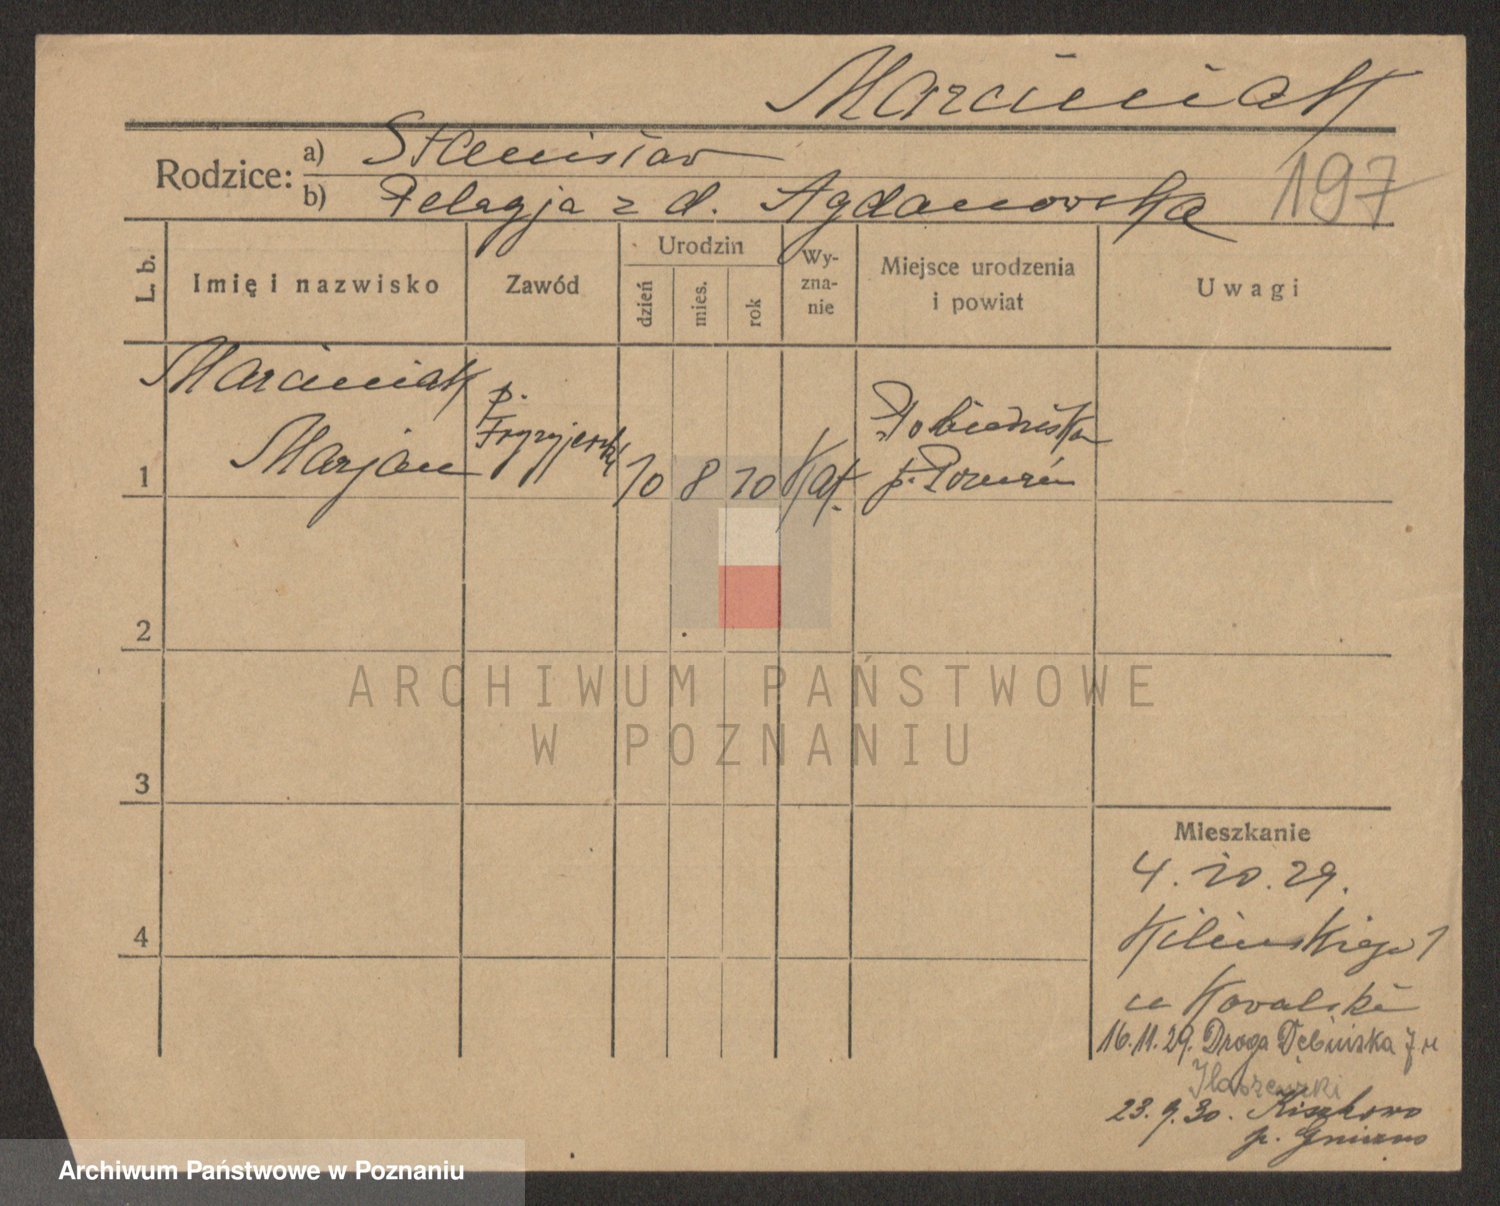 Marciniak
Rodzice: a) Stanisław
b) Pelagja z d. Agdanowska
197
L. b. Imię i nazwisko Zawód Urodzin dzień mies. rok Wy-
zna-
nie Miejsce urodzenia
i powiat Uwagi
Marciniak
Marjan
p.
fryzyjerski
1 10 8 10 Kat. Pobiedziska
p. Poznań
2
3
4
ARCHIWUM PAŃSTWOWE
W POZNANIU
Mieszkanie
4. 10. 29.
Kilińskiego 1
u Kowalski
16.11.29. Droga Dębińska 7 u
23. 9. 30. Kiszkowo
p. Gniezno
Archiwum Państwowe w Poznaniu